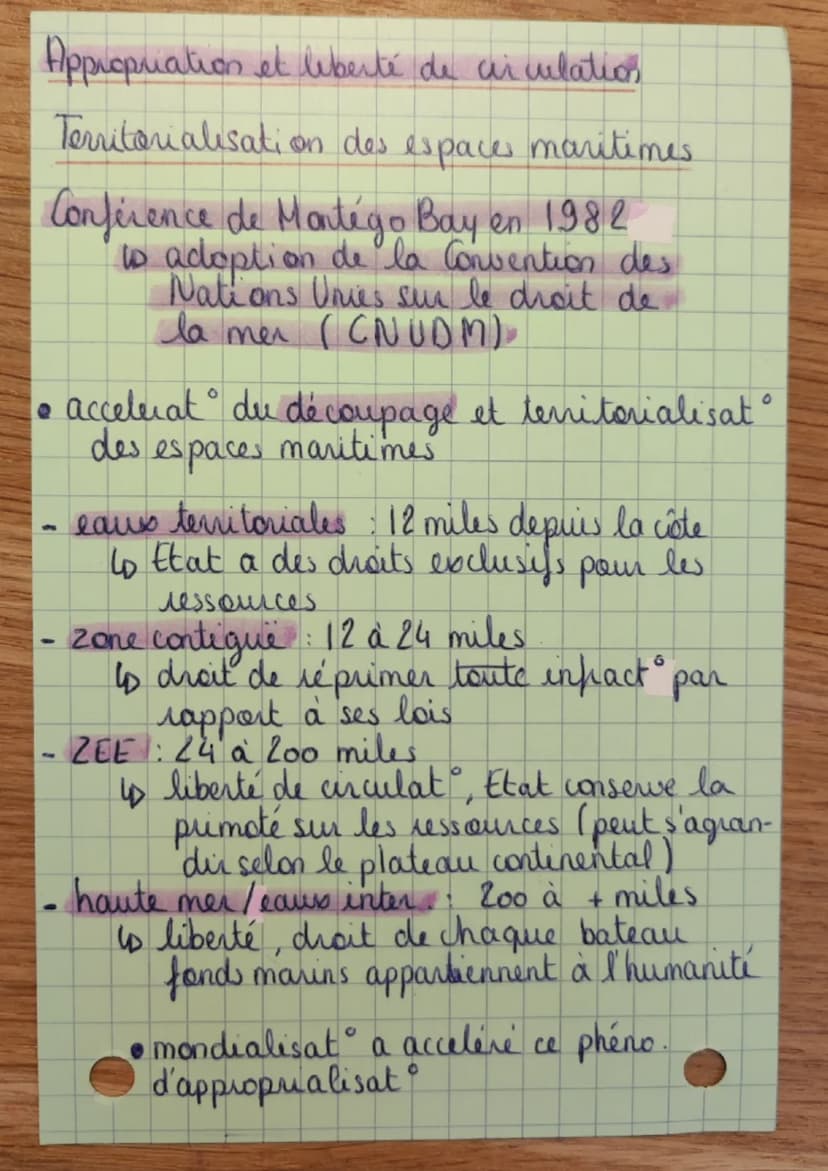 Appropriation et liberté de circulation
Territorialisation des espaces maritimes
Conférence de Montégo Bay en 1982
↳ adoption de la Convention des
Nations Unies sur le droit de
la mer (CNUDM)
• accelerat° du découpage et territorialisat°
des espaces maritimes
- eaux territoriales : 12 miles depuis la côte
↳ Etat a des droits exclusifs pour les
ressources
- zone contiguë : 12 à 24 miles
↳ droit de réprimer toute infract° par
rapport à ses lois
- ZEE : 24 à 200 miles
↳ liberté de circulat°, Etat conserve la
primoté sur les ressources (peut s'agran-
dir selon le plateau continental)
- haute mer/eaux inter. : 200 à + miles
↳ liberté, droit de chaque bateau
fonds marins appartiennent à l'humanité
• mondialisat° a accéléré ce phéno.
d'approprialisat°